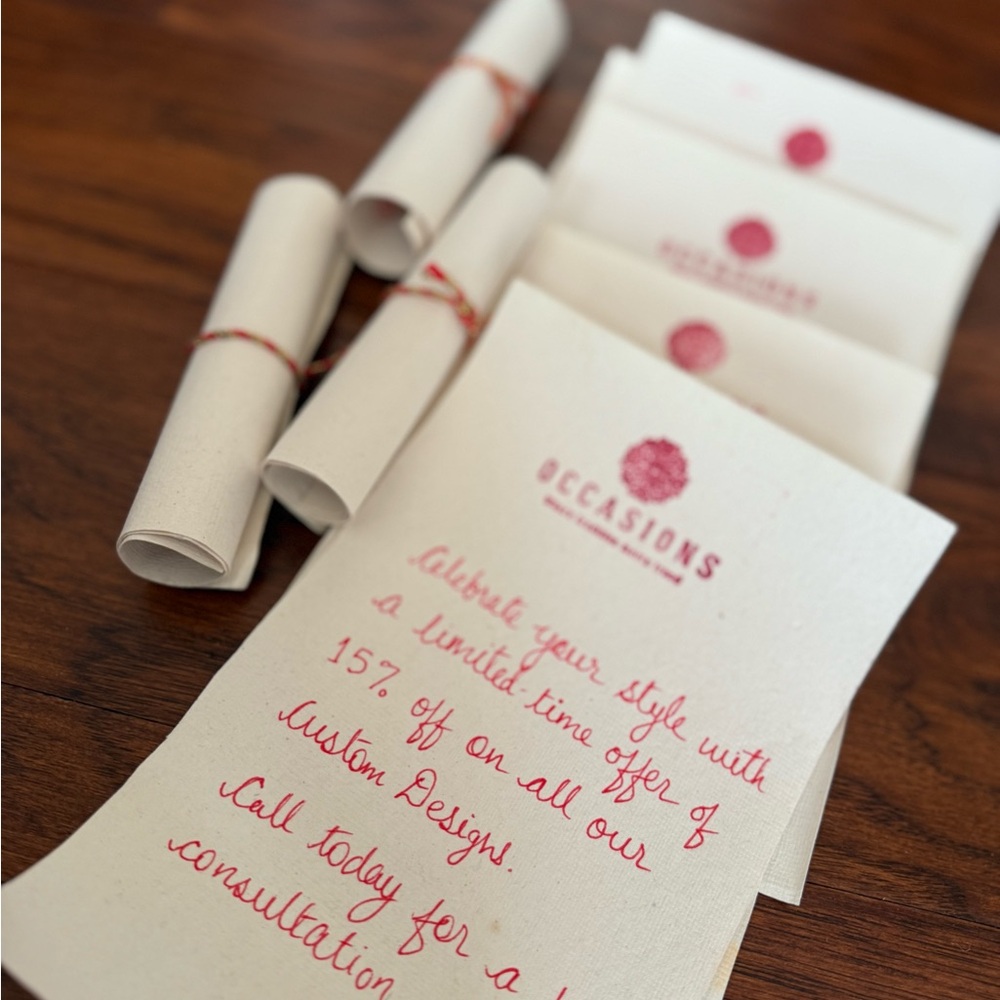 OCCASIONS
Celebrate your style with
a limited-time offer of
15% off on all our
Custom Designs.
Call today for a
consultation
OCCASIONS